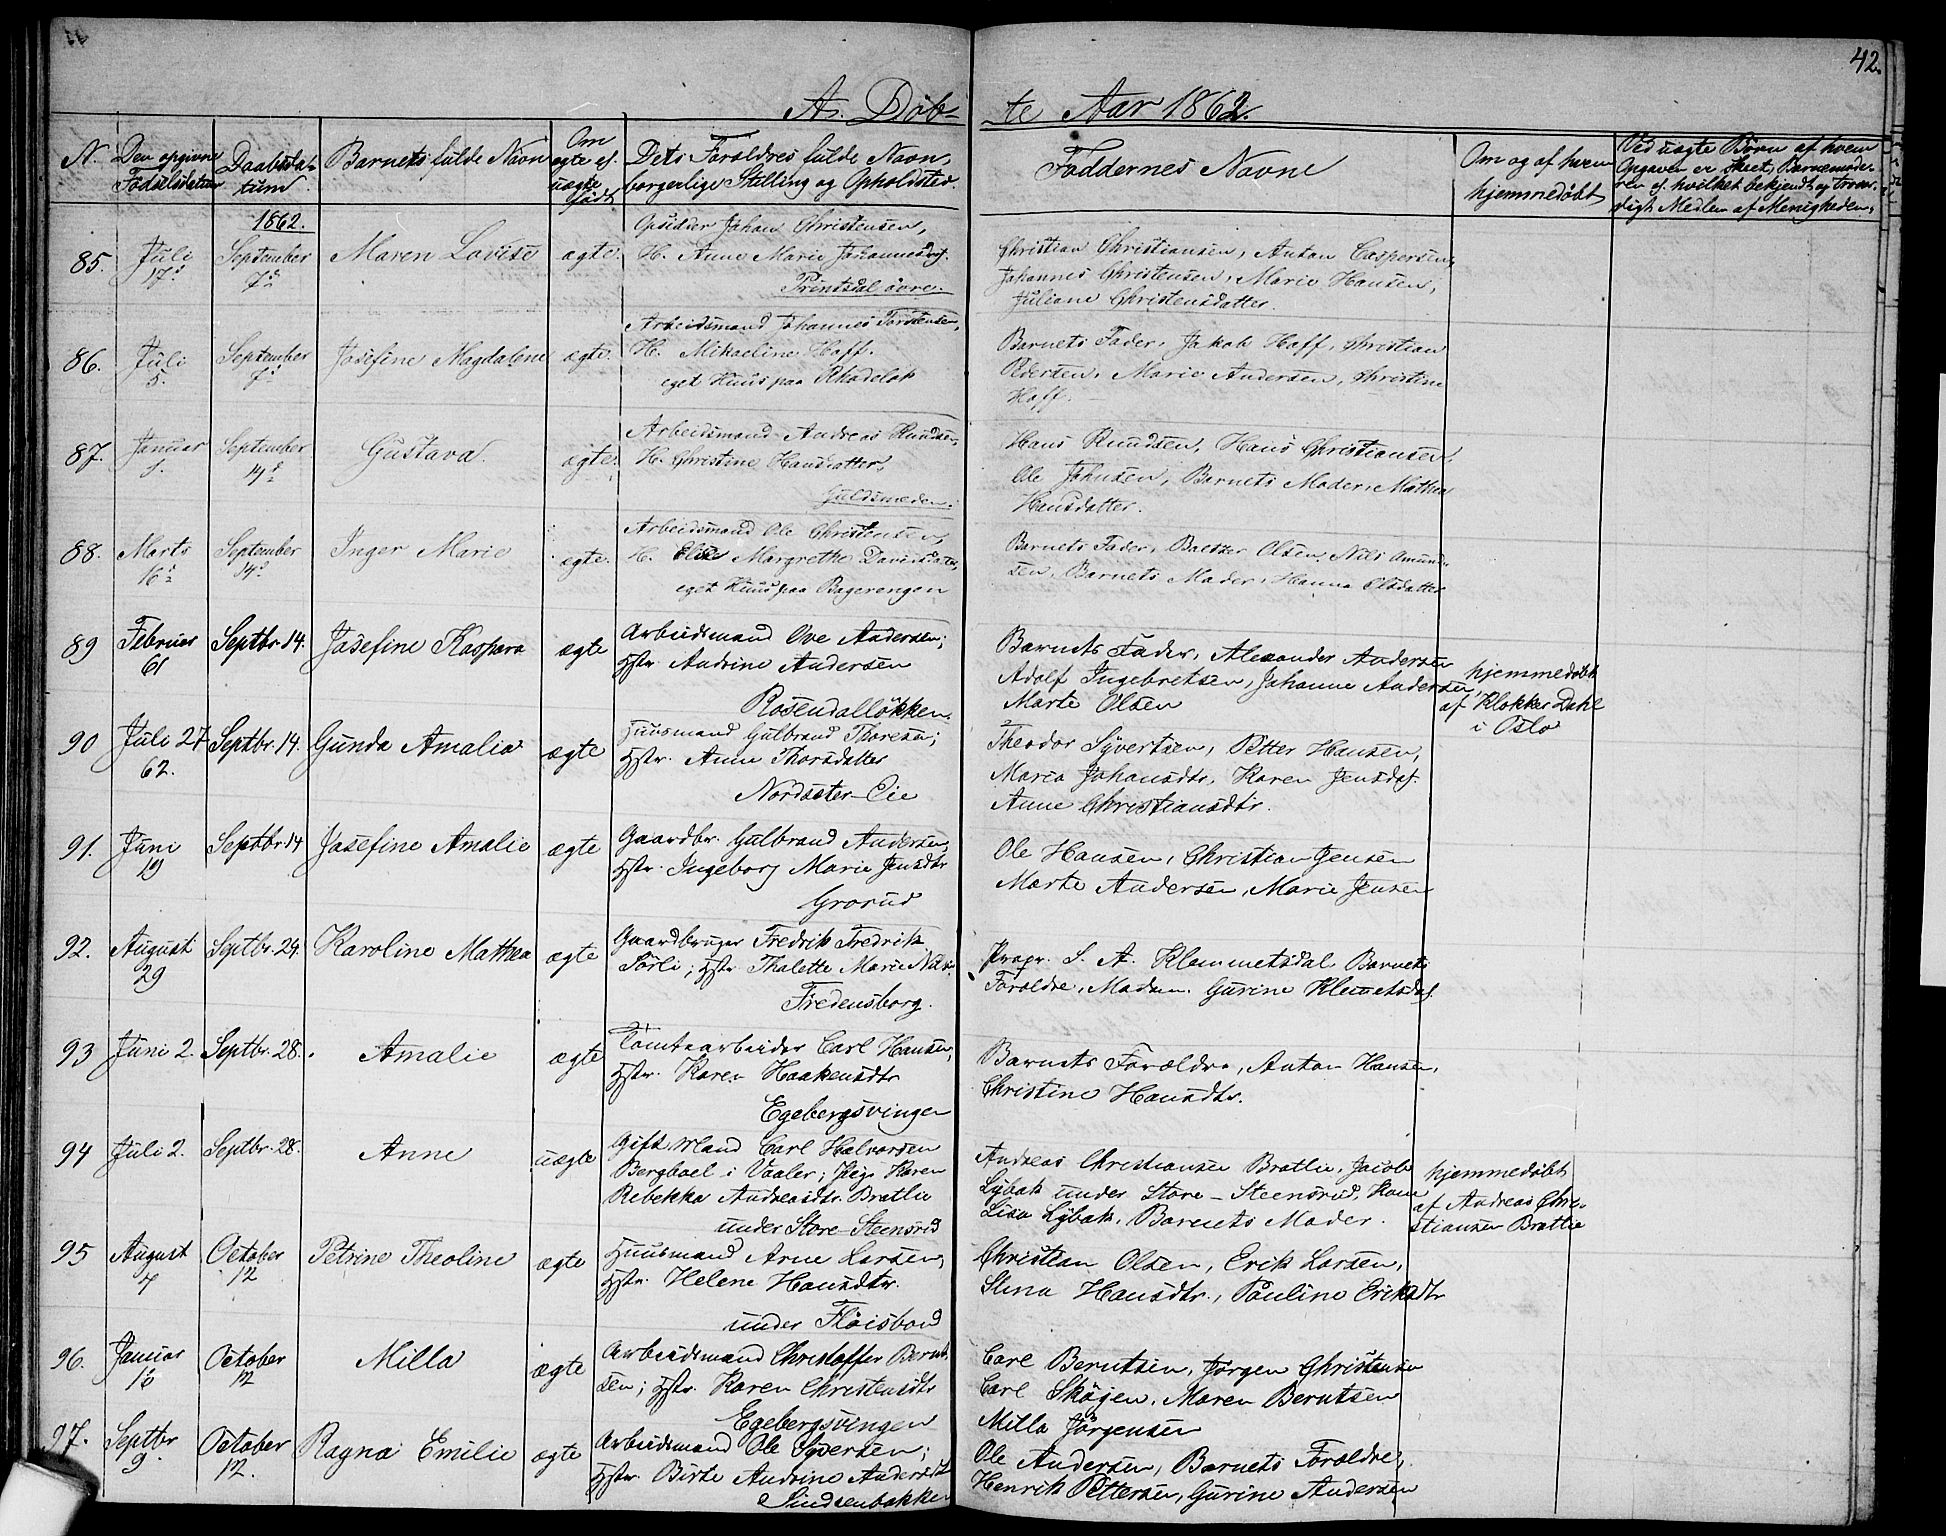 42.
A. Döbte Aar 1862.
N. Den opgivne Födselsdatum Daabsdatum Barnets fulde Navn Om ægte el. uægte födt Dets Forældres fulde Navn, borgerlige Stilling og Opholdsted. Faddernes Navne Om og af hvem hjemmedöbt Ved uægte Börn af hvem Opgaven er skeet,
1862.
85. Juli 17. September 7. Maren Lovise ægte.
Opsidder Johan Christensen,
H. Anne Marie Johannesdtr.
Printsdal övre.
Christian Christiansen, Anton Caspersen,
Johannes Christensen, Marie Hansen,
Juliane Christensdatter.
86. Juli 5. September 7. Josefine Magdalene ægte.
Arbeidsmand Johannes Torstensen,
H. Mikaeline Hoff.
eget Huus paa Rhodelök
Barnets Fader, Jakob Hoff, Christian
Pedersen, Marie Andersen, Christine
Hoff.
87. Januar September 14 Gustava. ægte.
Arbeidsmand Andreas Knudsen,
H. Christine Hansdatter,
Guldsmeden.
Hans Knudsen, Hans Christiansen,
Ole Johnsen, Barnets Moder, Mathea
Hansdatter.
88. Marts 16 September 14. Inger Marie ægte.
Arbeidsmand Ole Christensen,
H. Elise Margrethe Davidsdatter,
eget Huus paa Bagerengen
Barnets Fader, Baltzer Olsen, Nils Amund-
sen, Barnets Moder, Hanna Olsdatter
89 Februar 61 Septbr. 14. Josefine Kaspara ægte
Arbeidsmand Ove Andersen;
Hstr. Andrine Andersen
Rosendallökken.
Barnets Fader, Alexander Andersen
Adolf Ingebretsen, Johanne Andersen,
Marte Olsen
hjemmedöbt
af Klokker Dahl
i Oslo
90 Juli 27 62. Septbr. 14. Gunda Amalia ægte
Huusmand Gulbrand Thoresen;
Hstr. Anne Thorsdatter
Nordseter-Eie
Theodor Syvertsen, Petter Hansen,
Maria Johansdtr, Karen Jensdtr.
Anne Christiansdtr.
91. Juni 19 Septbr. 14 Josefine Amalie ægte
Gaardbr. Gulbrand Andersen,
Hstr. Ingeborg Marie Jensdtr
Grorud
Ole Hansen, Christian Jensen
Marte Andersen, Marie Jensen
92. August 29 Septbr. 29. Karoline Mathea ægte
Gaardbruger Fredrik Fredrik
Sörli; Hstr. Thalette Marie
Fredensborg.
Propr. S. A. Klemmetsdal Barnets
Forældre, Madam. Gurine Klemetsdal.
93 Juni 2. Septbr. 28. Amalie ægte
Tomtearbeider Carl Hansen,
Hstr. Karen Haakensdtr
Egebergsvingen
Barnets Forældre, Anton Hansen,
Christine Hansdtr.
94 Juli 2. Septbr. 28. Anne uægte
Gift Mand Carl Halvorsen
Bergboel i Vaaler; Pige Karen
Rebekka Andreasdtr. Bratlie
under Store-Steensrud
Andreas Christiansen Bratlie, Jacob
Lybak under Store-Steensrud, Karen
Lisa Lybak, Barnets Moder.
hjemmedöbt
af Andreas Chri-
stiansen Bratlie
95 August 4 October 12 Petrine Theoline ægte
Huusmand Arne Larsen,
Hstr. Helene Hansdtr.
under Flöisbond
Christian Olsen, Erik Larsen,
Stina Hansdtr., Pauline Eriksdtr
96. Januar 16 October 12 Milla ægte
Arbeidsmand Christoffer Bernt-
sen; Hstr. Karen Christensdtr
Egebergsvingen
Carl Berntsen, Jörgen Christensen
Carl Skogen, Maren Berntsen
Milla Jörgensen
97. Septbr 9. October 12. Ragna Emilie ægte
Arbeidsmand Ole Syversen;
Hstr. Birte Andrine Andersdtr
Sindsenbakken
Ole Andersen, Barnets Forældre,
Henrik Pettersen, Gurine Andersen